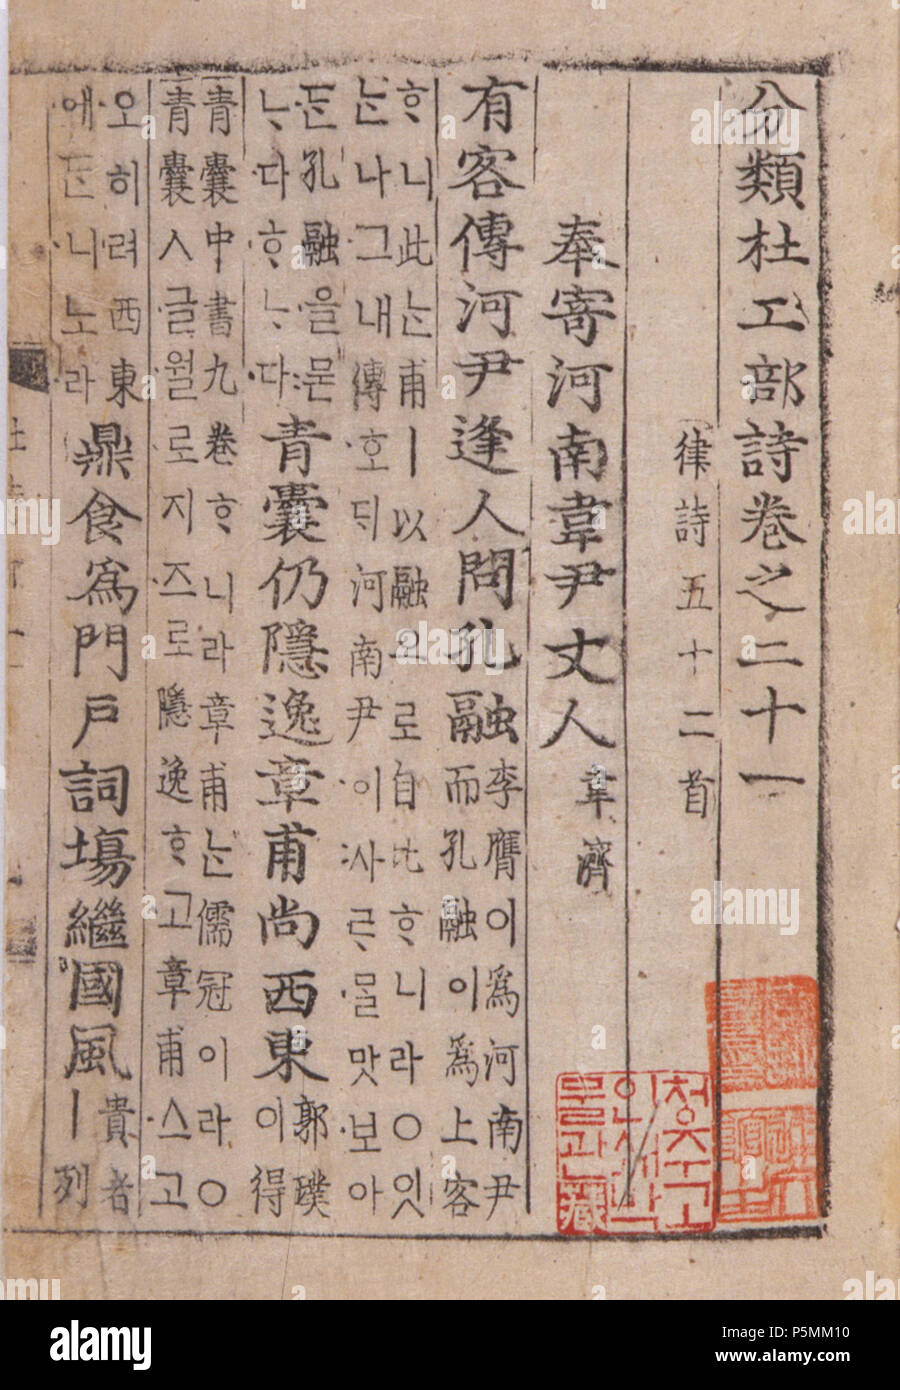 分類杜工部詩卷之二十一
律詩五十二首
奉寄河南韋尹丈人 韋濟
有客傳河尹逢人問孔融 李膺이爲河南尹
而孔融이爲上客
ᄒᆞ니此ᄂᆞᆫ甫ㅣ以融으로自比ᄒᆞ니라○잇
ᄂᆞᆫ나그내傳호ᄃᆡ河南尹이사ᄅᆞᄆᆞᆯ맛보아
ᄃᆞᆫ孔融을묻
ᄂᆞ다ᄒᆞᄂᆞ다
青囊仍隱逸章甫尚西東 郭璞
이得
青囊中書九卷ᄒᆞ니라章甫ᄂᆞᆫ儒冠이라○
青囊ㅅ글월로지즈로隱逸ᄒᆞ고章甫스고
오히려西東
애ᄃᆞᆫ니노라
鼎食爲門戶詞場繼國風 貴者
ㅣ列
청주고
인쇄박
물관
藏
alamy
Image ID: P5MM10
www.alamy.com